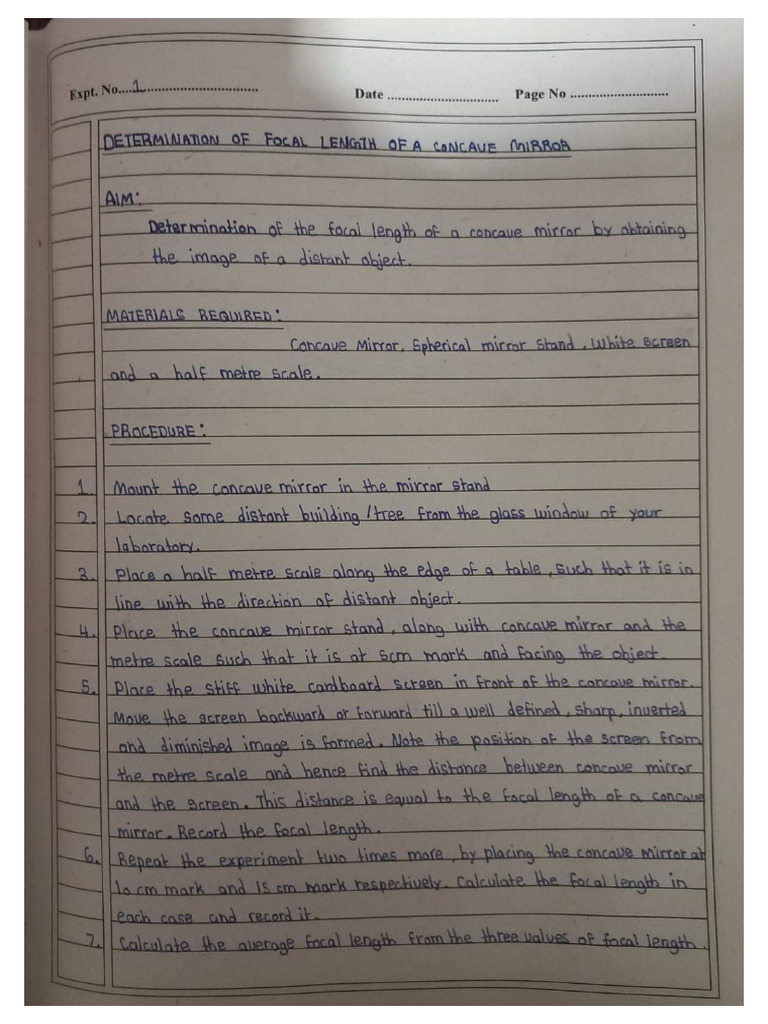 Expt. No....1............................... Date .............................. Page No ...........................
DETERMINATION OF FOCAL LENGTH OF A CONCAVE MIRROR
AIM:
Determination of the focal length of a concave mirror by obtaining
the image of a distant object.
MATERIALS REQUIRED:
Concave Mirror, Spherical mirror stand, White screen
and a half metre scale.
PROCEDURE:
1. Mount the concave mirror in the mirror stand
2. Locate some distant building/tree from the glass window of your
laboratory.
3. Place a half metre scale along the edge of a table, such that it is in
line with the direction of distant object.
4. Place the concave mirror stand, along with concave mirror and the
metre scale such that it is at 5cm mark and facing the object.
5. Place the stiff white cardboard screen in front of the concave mirror.
Move the screen backward or forward till a well defined, sharp, inverted
and diminished image is formed. Note the position of the screen from
the metre scale and hence find the distance between concave mirror
and the screen. This distance is equal to the focal length of a concave
mirror. Record the focal length.
6. Repeat the experiment two times more, by placing the concave mirror at
10 cm mark and 15 cm mark respectively. Calculate the focal length in
each case and record it.
7. Calculate the average focal length from the three values of focal length.